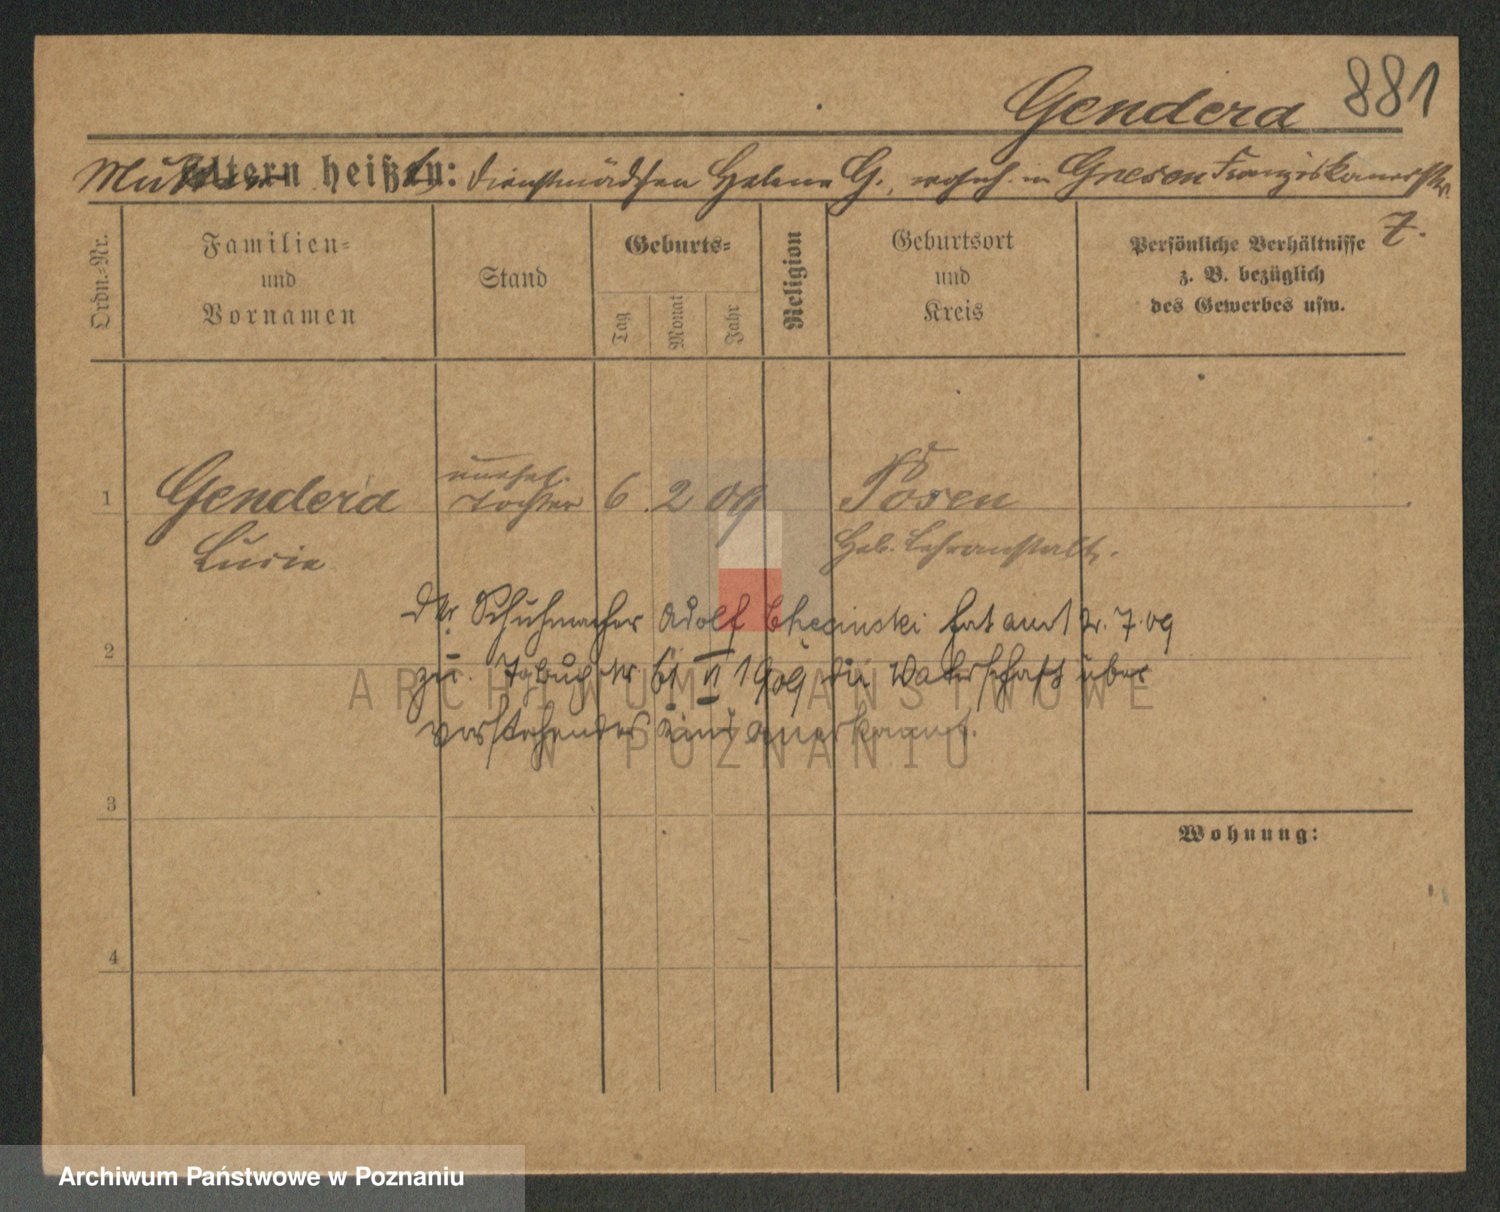 881
Gendera
Mutter heißt: Dienstmädchen Helene G., wohnh. in Gnesen Franziskanerstr.
7.
Ordn.-Nr.
Familien-
und
Vornamen
Stand
Geburts-
Tag
Monat
Jahr
Religion
Geburtsort
und
Kreis
Persönliche Verhältnisse
z. B. bezüglich
des Gewerbes usw.
1
Gendera
Lucie
unehel.
Tochter
6. 2 09
Posen
Heb. Lehranstalt.
Der Schuhmacher Adolf hat am 12. 7. 09
2
zu Tgbuch Nr. 61 VI 1909 die Vaterschaft über
vorstehendes Kind anerkannt.
3
4
Wohnung:
ARCHIWUM PAŃSTWOWE
W POZNANIU
Archiwum Państwowe w Poznaniu